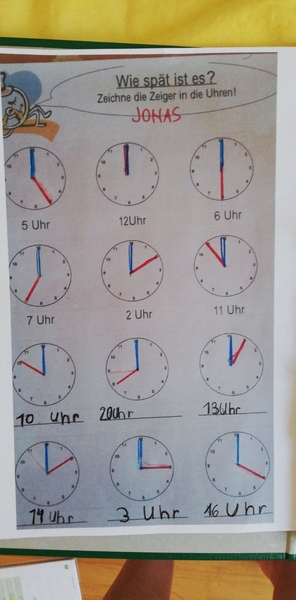 Wie spät ist es?
Zeichne die Zeiger in die Uhren!
JONAS
5 Uhr 12Uhr 6 Uhr
7 Uhr 2 Uhr 11 Uhr
10 Uhr 20Uhr 13Uhr
14 Uhr 3 Uhr 16 Uhr